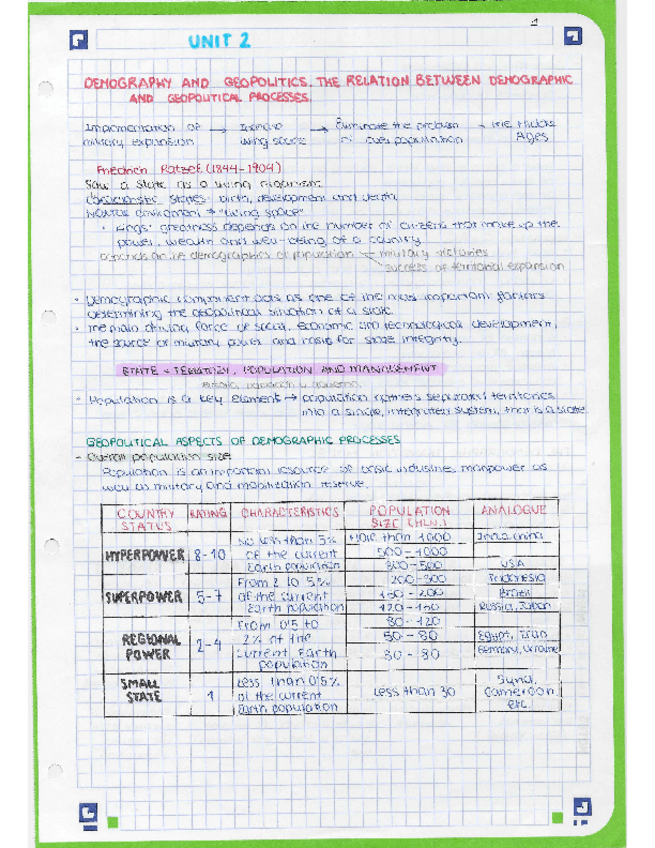 1
UNIT 2
DEMOGRAPHY AND GEOPOLITICS. THE RELATION BETWEEN DEMOGRAPHIC
AND GEOPOLITICAL PROCESSES.
Implementation of → → Eliminate the problem
military expansion living space of overpopulation Ages
Friedrich Ratzel (1844-1904)
Saw a State as a living organism
states: birth, development and death
→ "living space"
· Kings' greatness depends on the number of citizens that make up the
power, wealth and well-being of a country
depends on the demographics of population military victories
success of territorial expansion
· Demographic component acts as one of the most important factors
determining the geopolitical situation of a state.
· The main driving force of social, economic and technological development,
the source of military power and basis for state integrity.
STATE = TERRITORY, POPULATION AND MANAGEMENT
· Population is a key element → population gathers separated territories
into a single, integrated system, that is a state
GEOPOLITICAL ASPECTS OF DEMOGRAPHIC PROCESSES
- Overall population size
Population is an important resource of basic industrie, manpower as
well as military and mobilization reserve.
COUNTRY RATING CHARACTERISTICS POPULATION ANALOGUE
STATUS SIZE (MLN.)
HYPERPOWER 8-10 No less than 5% of the current Earth population
More than 1000 India, China
500-1000
300-500 USA
SUPERPOWER 5-7 From 2 to 5% of the current Earth population
200-300 Indonesia
150-200 Brazil
120-150 Russia, Japan
REGIONAL POWER 2-4 From 0'5 to 2% of the current Earth population
80-120
50-80 Egypt, Iran
30-80 Germany, Ukraine
SMALL STATE 1 Less than 0'5% of the current Earth population
Less than 30 Cameroon, etc.